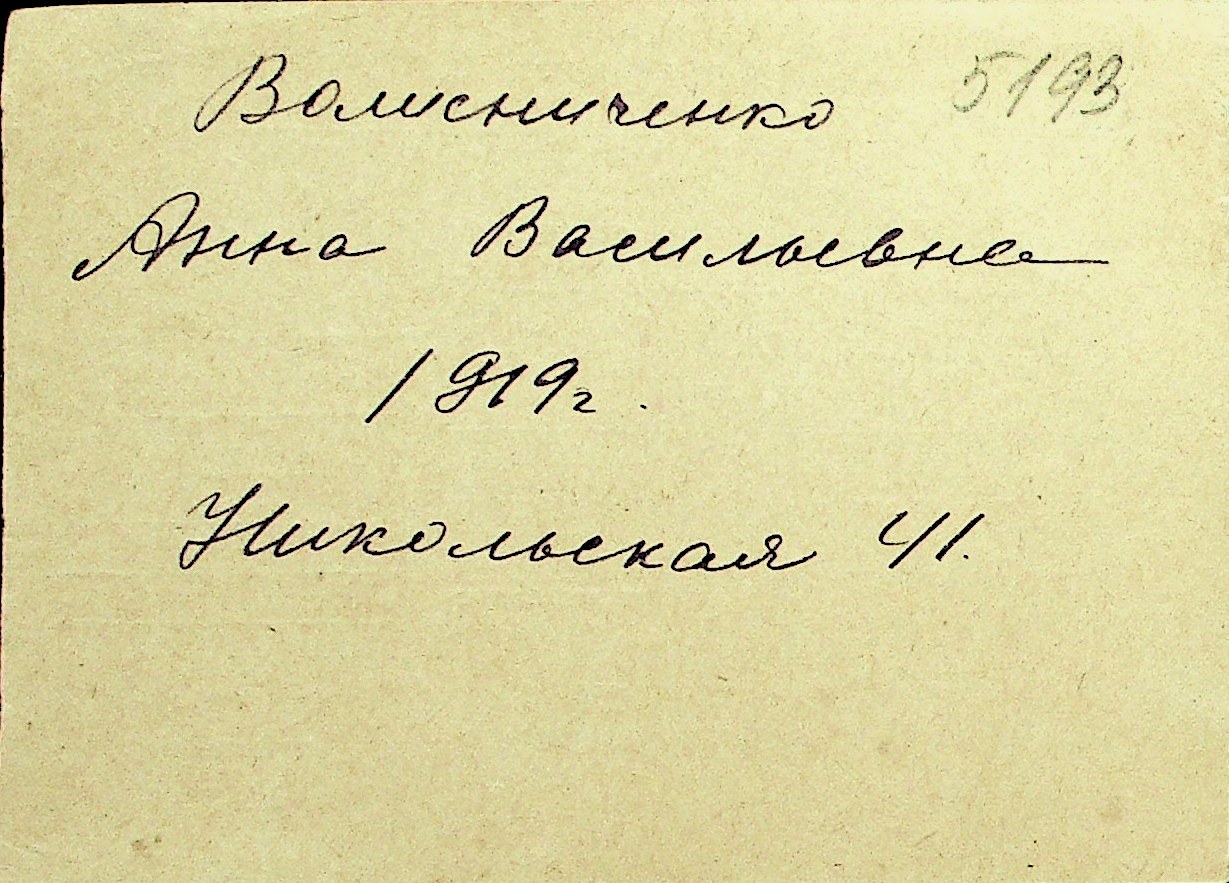 Волисниченко 5193
Анна Васильевна
1919г.
Никольская 41.